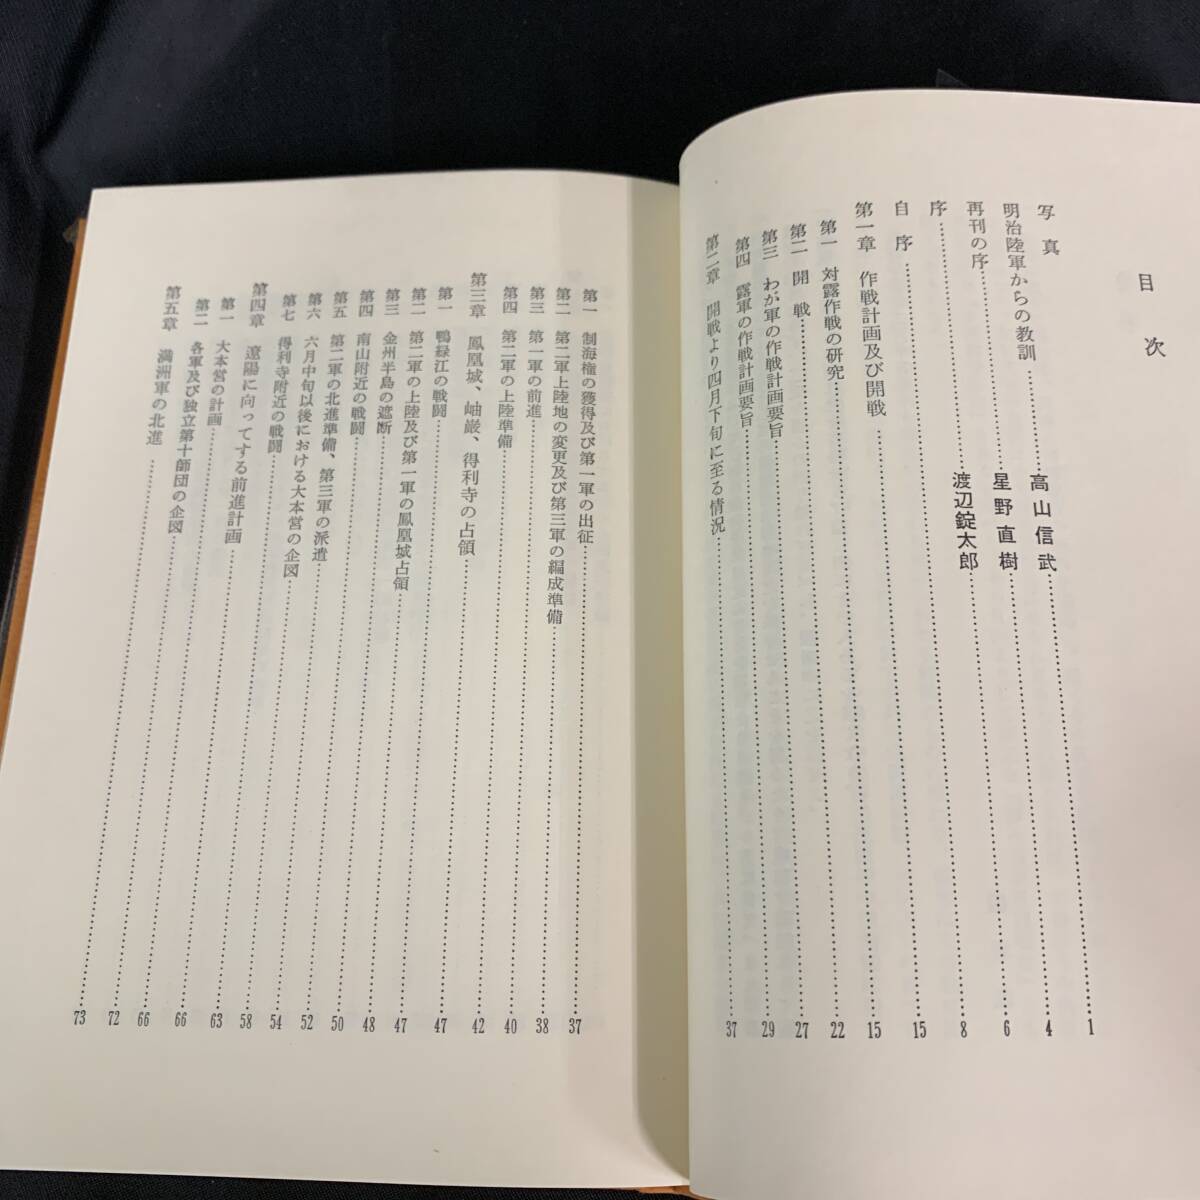 目次
写真
明治陸軍からの教訓……高山信武……1
再刊の序……星野直樹……4
序……渡辺錠太郎……6
自序……8
第一章 作戦計画及び開戦……15
第一 対露作戦の研究……15
第二 開戦……22
第三 わが軍の作戦計画要旨……27
第四 露軍の作戦計画要旨……29
第二章 開戦より四月下旬に至る情況……37
第一 制海権の獲得及び第一軍の出征……37
第二 第二軍上陸地の変更及び第三軍の編成準備……38
第三 第一軍の前進……40
第四 第二軍の上陸準備……42
第三章 鳳凰城、岫巌、得利寺の占領……47
第一 鴨緑江の戦闘……47
第二 第二軍の上陸及び第一軍の鳳凰城占領……48
第三 金州半島の遮断……50
第四 南山附近の戦闘……52
第五 第二軍の北進準備、第三軍の派遣……54
第六 六月中旬以後における大本営の企図……58
第七 得利寺附近の戦闘……63
第四章 遼陽に向ってする前進計画……66
第一 大本営の計画……66
第二 各軍及び独立第十師団の企図……72
第五章 満洲軍の北進……73